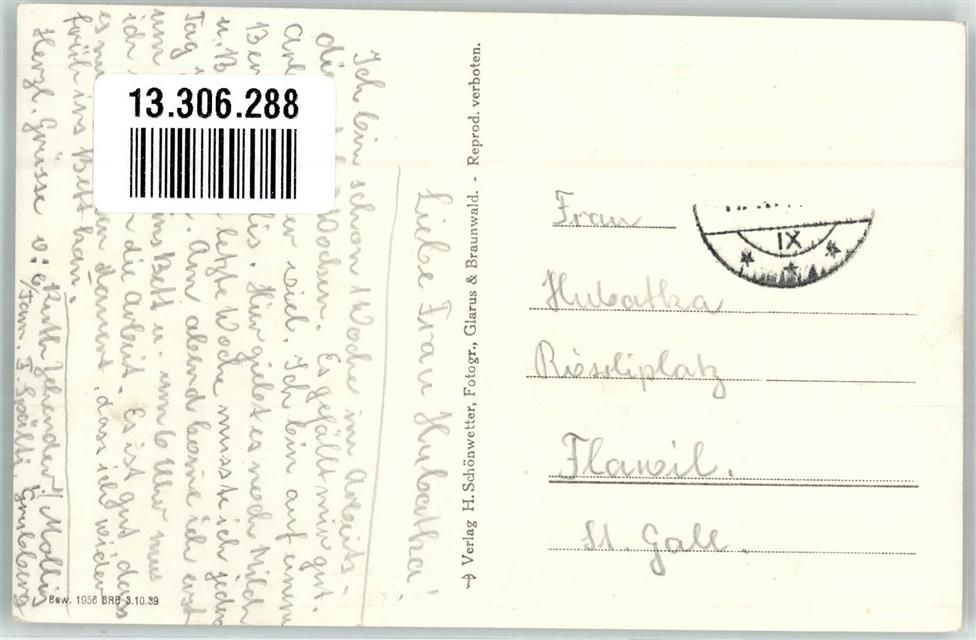 Liebe Frau Hubatka!
Ich bin schon 1 Woche im Arbeits-
die Wochen. Es gefällt mir gut.
er viel. Ich bin auf einem
Ber lis. Hier giebt es noch Milch
u. B letzte Woche musst ich jeden
Tag Am abend konne ich erst
um ins Bett u. um 6 Uhr mus
ich die Arbeit. Es ist gut dass
es nu dauert, dass ich wieder
früh ins Bett kan.
Herzl. Grüsse v:
Ruth Zehender, Mollis
Fam. F. Spälti
13.306.288
→ Verlag H. Schönwetter, Fotogr., Glarus & Braunwald. - Reprod. verboten.
Bew. 1956 BRB 3.10.39
Frau
Hubatka
Rösliplatz
Flawil.
St. Gall.
IX